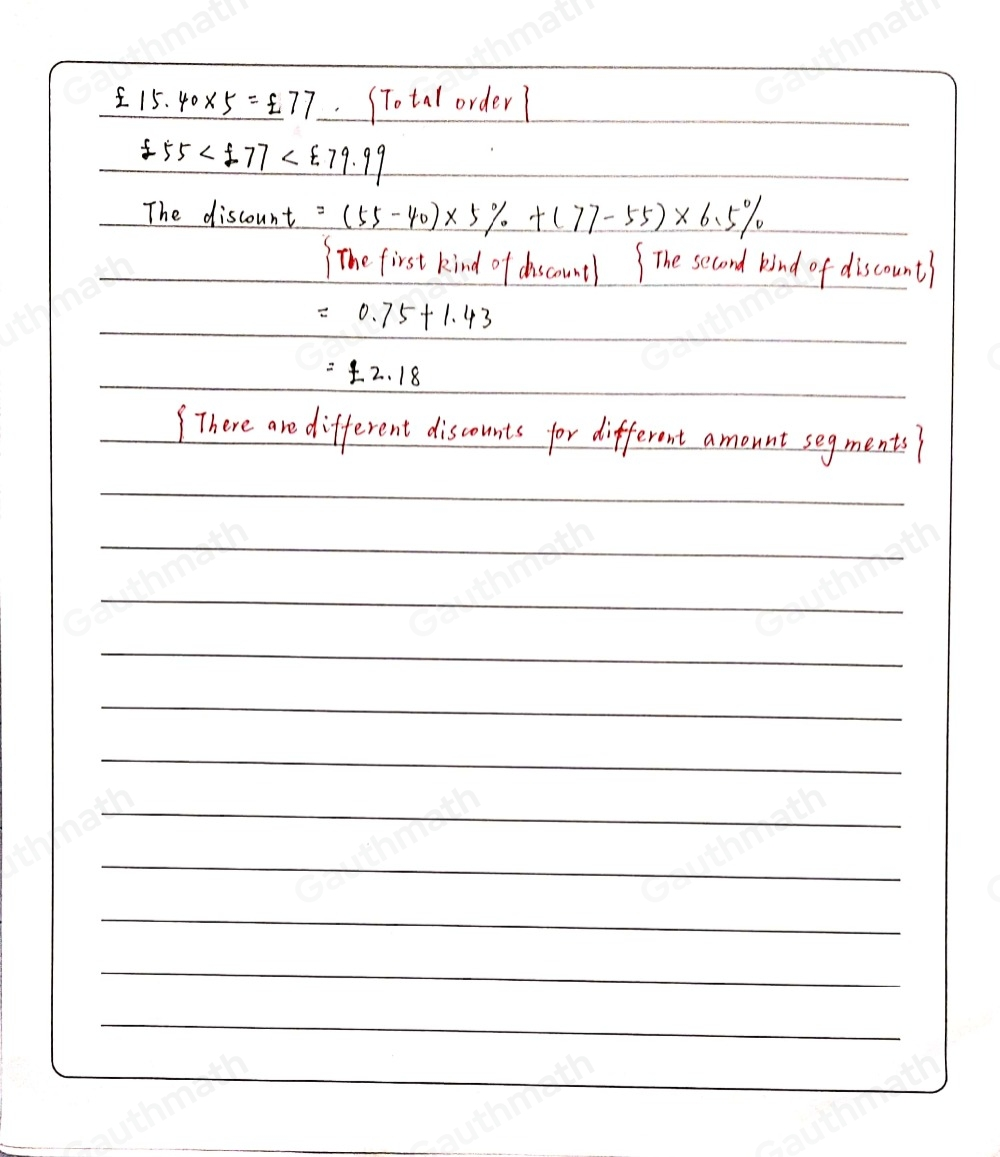 £15.40×5=£77. {Total order}
£55<£77<£79.99
The discount = (55-40)×5% +(77-55)×6.5%
{The first kind of discount} {The second kind of discount}
= 0.75+1.43
= £2.18
{There are different discounts for different amount segments}